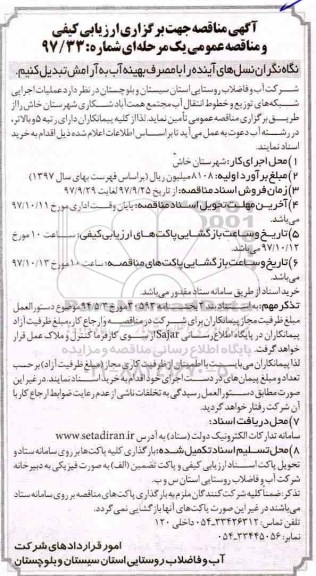 آگهی مناقصه جهت برگزاری ارزیابی کیفی
و مناقصه عمومی یک مرحله‌ای شماره: ۹۷/۳۳
نگاه نگران نسل‌های آینده را با مصرف بهینه آب به آرامش تبدیل کنیم.
شرکت آب و فاضلاب روستایی استان سیستان و بلوچستان در نظر دارد عملیات اجرایی
شبکه‌های توزیع و خطوط انتقال آب مجتمع همت آباد شکاری شهرستان خاش را از
طریق برگزاری مناقصه عمومی تأمین نماید. لذا از کلیه پیمانکاران دارای رتبه ۵ و بالاتر،
در رشته آب دعوت به عمل می‌آید تا بر اساس اطلاعات اعلام شده ذیل اقدام به خرید
اسناد نمایند.
۱) محل اجرای کار: شهرستان خاش
۲) مبلغ برآورد اولیه: ۸۱۰۸ میلیون ریال (بر اساس فهرست بهای سال ۱۳۹۷)
۳) زمان فروش اسناد مناقصه: از تاریخ ۹۷/۹/۲۵ لغایت ۹۷/۹/۲۹
۴) آخرین مهلت تحویل اسناد مناقصه: پایان وقت اداری مورخ ۹۷/۱۰/۱۱
می‌باشد.
۵) تاریخ و ساعت بازگشایی پاکت‌های ارزیابی کیفی: ساعت ۱۰ مورخ
۹۷/۱۰/۱۲ می‌باشد.
۶) تاریخ و ساعت بازگشایی پاکت‌های مناقصه: ساعت ۱۰ مورخ ۹۷/۱۰/۱۳
می‌باشد.
خرید اسناد از طریق سامانه ستاد مقدور می‌باشد.
تذکر مهم: به استناد بند ۳ بخشنامه ۳۰۵۹۳ مورخ ۹۴/۵/۳ موضوع دستورالعمل
مبلغ ظرفیت مجاز پیمانکاران برای شرکت در مناقصه و ارجاع کار، مبلغ ظرفیت آزاد
پیمانکاران در پایگاه اطلاع رسانی Sajar از سوی کارفرما کنترل و ملاک عمل قرار
خواهد گرفت.
لذا پیمانکاران می‌بایست با اطمینان از ظرفیت کاری مجاز (مبلغ ظرفیت آزاد) بر حسب
تعداد و مبلغ پیمان‌های در دست اجرای خود اقدام به خرید اسناد نمایند. در غیر این
صورت مطابق دستورالعمل رسیدگی به تخلفات ناشی از عدم رعایت ضوابط ارجاع کار با
آن شرکت رفتار خواهد گردید.
۷) محل دریافت اسناد:
سامانه تدارکات الکترونیک دولت (ستاد) به آدرس www.setadiran.ir
۸) محل تسلیم اسناد تکمیل شده: بارگذاری کلیه پاکت‌ها بر روی سامانه ستاد و
تحویل پاکت اسناد ارزیابی کیفی و پاکت تضمین (الف) به صورت فیزیکی به دبیرخانه
شرکت آب و فاضلاب روستایی استان س و ب.
تذکر: ضمنا کلیه شرکت کنندگان ملزم به بارگذاری پاکت‌های مناقصه بر روی سامانه ستاد
می‌باشند در غیر این صورت پاکت‌های آنها بازگشایی نمی گردد.
تلفن تماس: ۳۳۴۲۶۳۱۲-۰۵۴ داخلی ۱۲۰
نمابر: ۳۳۴۴۵۰۵۶-۰۵۴
امور قراردادهای شرکت
آب و فاضلاب روستایی استان سیستان و بلوچستان
پایگاه اطلاع رسانی مناقصه و مزایده